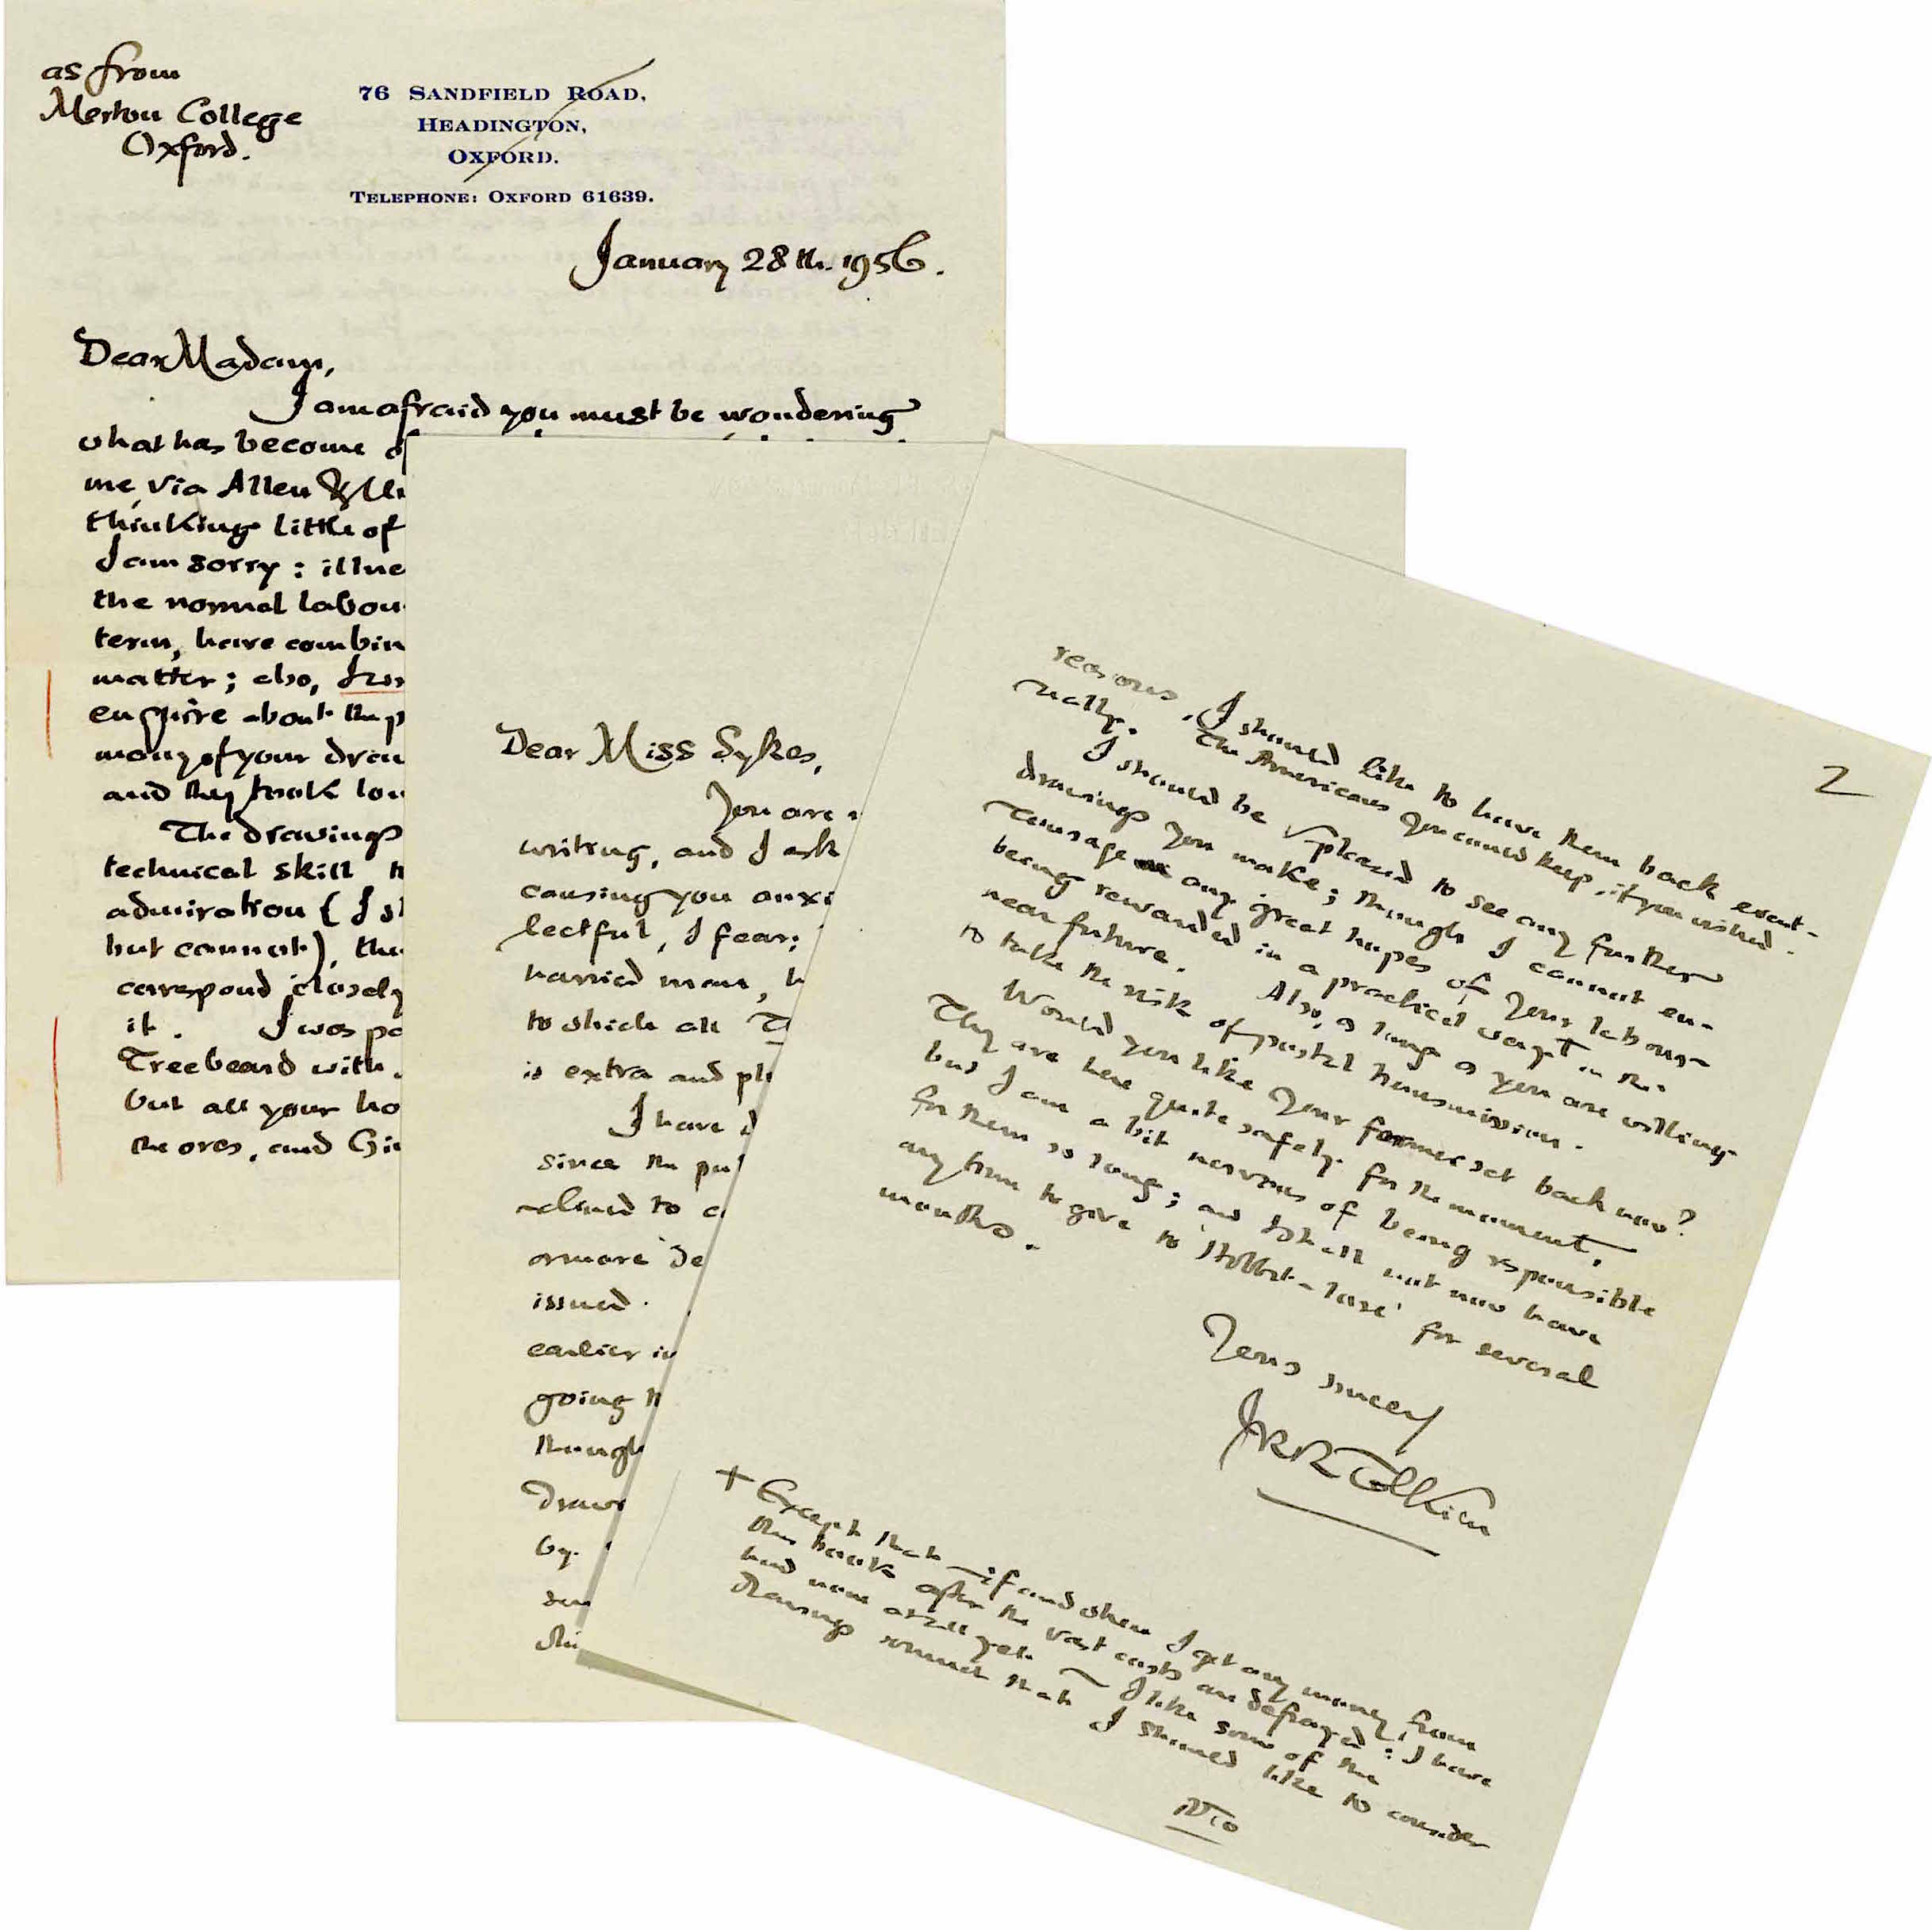 as from
Merton College
Oxford.
76 SANDFIELD ROAD,
HEADINGTON,
OXFORD.
TELEPHONE: OXFORD 61639.
January 28th. 1956.
Dear Madam,
I am afraid you must be wondering
what has become of
me, via Allen & Un
thinking little of
I am sorry : illne
the normal labou
term, have combin
matter ; also,
enquire about the p
many of your draw
and they took lon
The drawings
technical skill
admiration ( I s
but cannot), the
correspond closely
it. I was pa
Treebeard with
but all your ho
the orcs, and Gi
Dear Miss Sykes,
You are
writing, and I ask
causing you anxi
lectful, I fear;
harried man, h
to which all T
is extra and pl
I have
since the pu
clined to c
or more de
issued.
earlier in
going
though
draw
by.
reasons, I should like to have them back event-
ually. The Americans you could keep, if you wished.
I should be pleased to see any further
drawings you make; though I cannot en-
courage any great hopes of your labours
being rewarded in a practical way† in the
near future. Also, as long as you are willing
to take the risk of postal transmission.
Would you like your former set back now?
They are here quite safely for the moment,
but I am a bit nervous of being responsible
for them so long; and I shall not now have
any time to give to 'Hobbit-lore' for several
months.
Yours sincerely
JRRTolkien
+ Except that – if and when I get any money from
the books after the vast costs are defrayed : I have
had none at all yet – I like some of the
drawings so much that I should like to consider
PTO
2